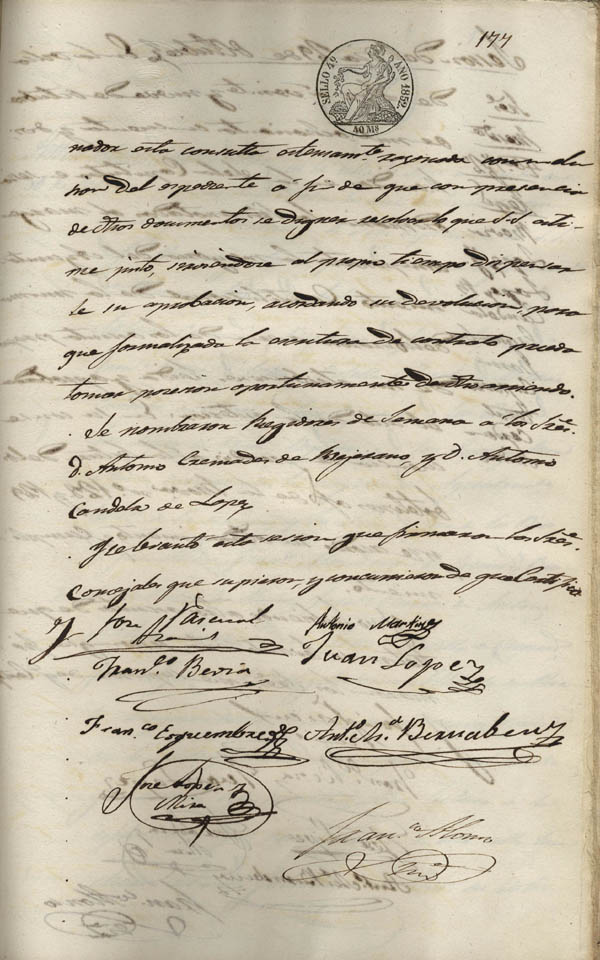 177
SELLO 4º AÑO 1852.
40 Ms
nador esta consulta estensamte. razonada con
sion del espediente á fin de que con presencia
de otros documentos se digne resolver lo que S.S. esti-
me justo, sirviendose al propio tiempo dispensar
le su aprobacion, acordando su devolucion, para
que formalizada la escritura de contrato pueda
tomar posesion oportunamente
Se nombraron Regidores de Semana á los Sres.
D. Antonio Cremades de Bejarano, y D. Antonio
Candela de Lopez
Y se levantó esta sesion que firmaron los Sres.
Concejales que supieron, y concurrieron de que
José Pascual
Antonio Martinez
Franco. Beviá
Juan Lopez
Franco. Esquembre
Anto. Ma. Bernabeu
José Lopez
Mira
Juan Alonso